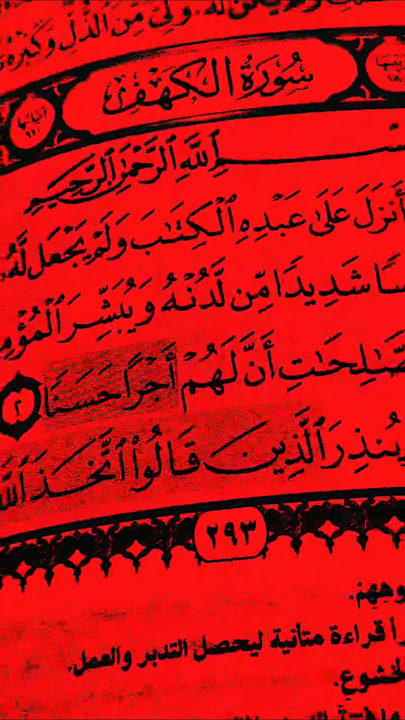 وَلِيٌّ مِّنَ ٱلذُّلِّ وَكَبِّرْهُ
سُورَةُ الكَهْفِ
ٱللَّهِ ٱلرَّحْمَٰنِ ٱلرَّحِيمِ
أَنزَلَ عَلَىٰ عَبْدِهِ ٱلْكِتَٰبَ وَلَمْ يَجْعَل لَّهُۥ
سًا شَدِيدًا مِّن لَّدُنْهُ وَيُبَشِّرَ ٱلْمُؤْمِ
صَّٰلِحَٰتِ أَنَّ لَهُمْ أَجْرًا حَسَنًا ٢
يُنذِرَ ٱلَّذِينَ قَالُوا۟ ٱتَّخَذَ ٱللَّهُ
٢٩٣
وههم.
أ قراءة متأنية ليحصل التدبر والعمل.
لخشوع.